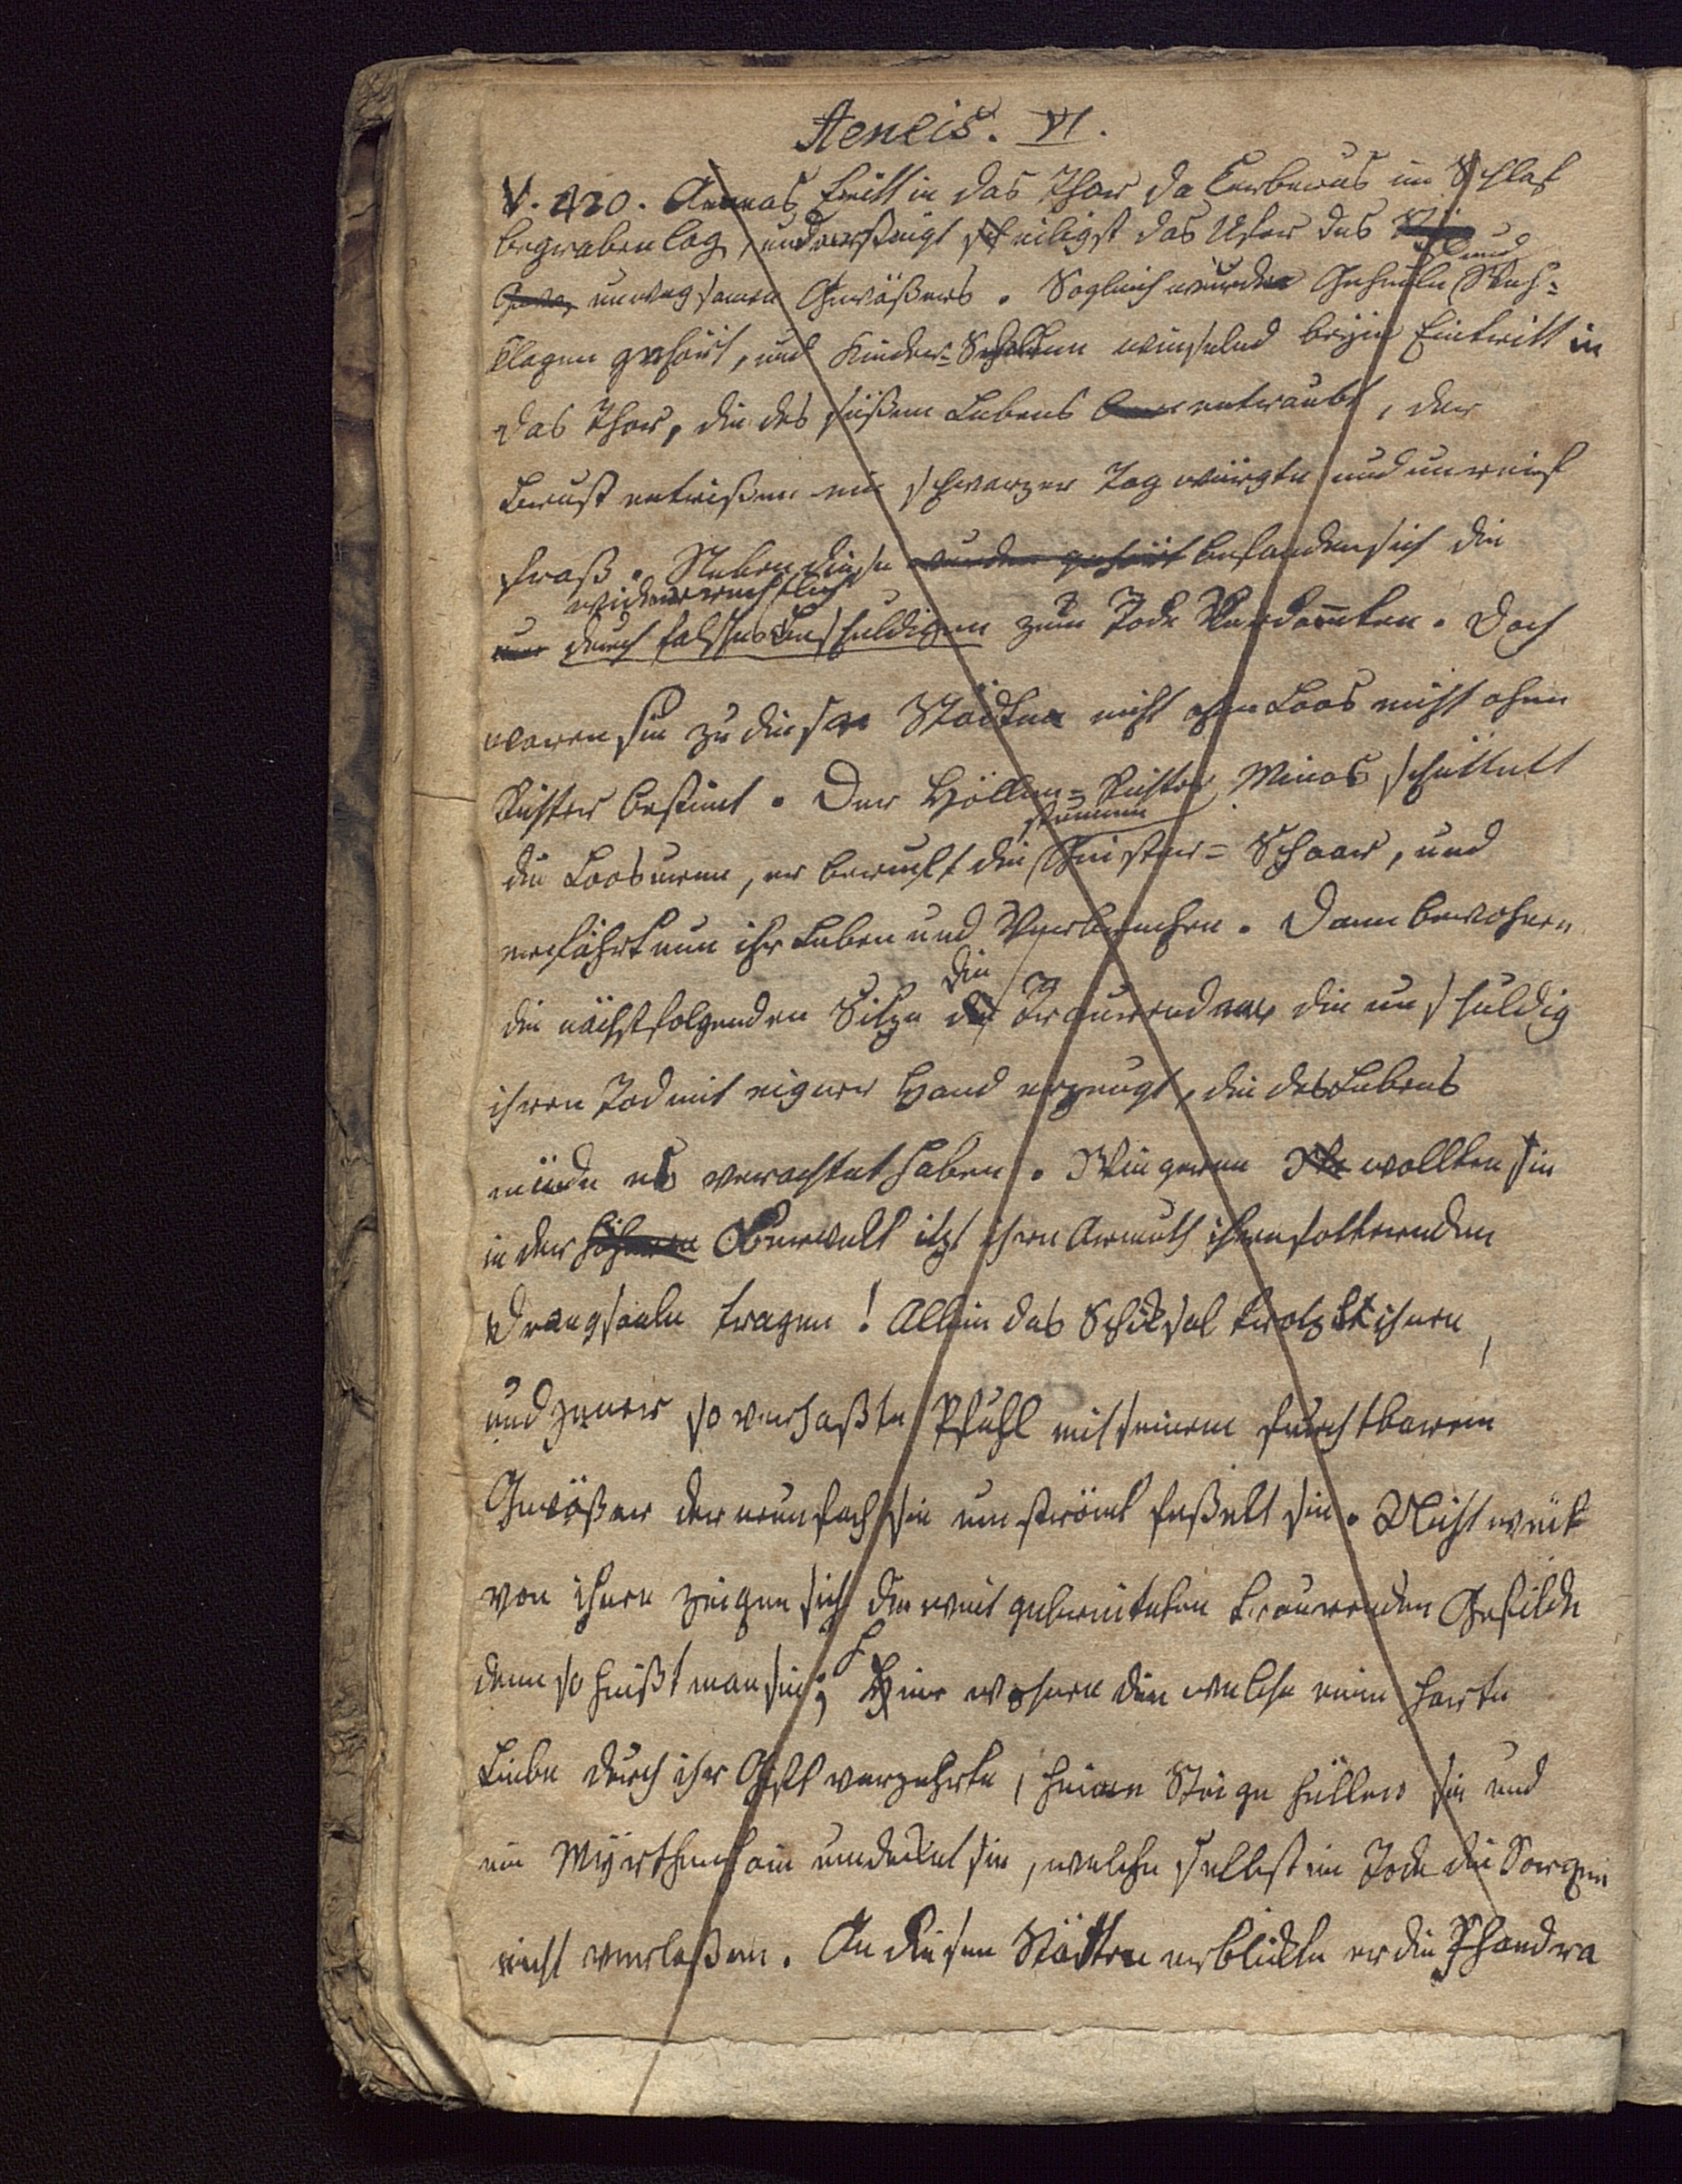 Aeneis. VI.
V. 420. Aeneas tritt in das Thor da Cerberus im Schlaf
begraben lag, und ersteigt eiligst das Ufer des
unwegsamen Gewäßers. Sogleich wurden Geheule und Weh=
klagen gehört, und Kinder=Seelen winselnd beym Eintritt in
das Thor, die des süßen Lebens entraubt, der
Brust entrißen ein schwarzer Tag würgte und unreif
fraß. Neben diese wurden gehört befanden sich die
widerrechtlich
durch falsches Beschuldigen zum Tode Verdamten. Doch
waren sie zu diesen Städten nicht ohne Loos nicht ohne
Richter bestimt. Der Höllen=Richter Minos schüttelt
die Loosurne, er beruft die stummen Geister=Schaar, und
erfährt nun ihr Leben und Verbrechen. Dann bewohnen
die nächstfolgenden Sitze die Traurenden die unschuldig
ihren Tod mit eigner Hand erzeugt, die des Lebens
müde es verachtet haben. Wie gerne wollten sie
in der höheren Oberwelt itzt ihre Armuth ihre folternden
Drangsaale tragen! Allein das Schiksal trotzt ihnen,
und jener so verhaßte Pfuhl mit seinem furchtbaren
Gewäßer der neunfach sie umströmt feßelt sie. Nicht weit
von ihnen zeigen sich die weit gebreiteten traurenden Gefilde
denn so heißt man sie; Hier wohnen die welche eine harte
Liebe durch ihr Gift verzehrte, heime Steige hüllen sie und
ein Myrthenhain umdecket sie, welche selbst im Tode die Sorgen
nicht verlaßen. An diesen Stätten erblickte er die Phaedra